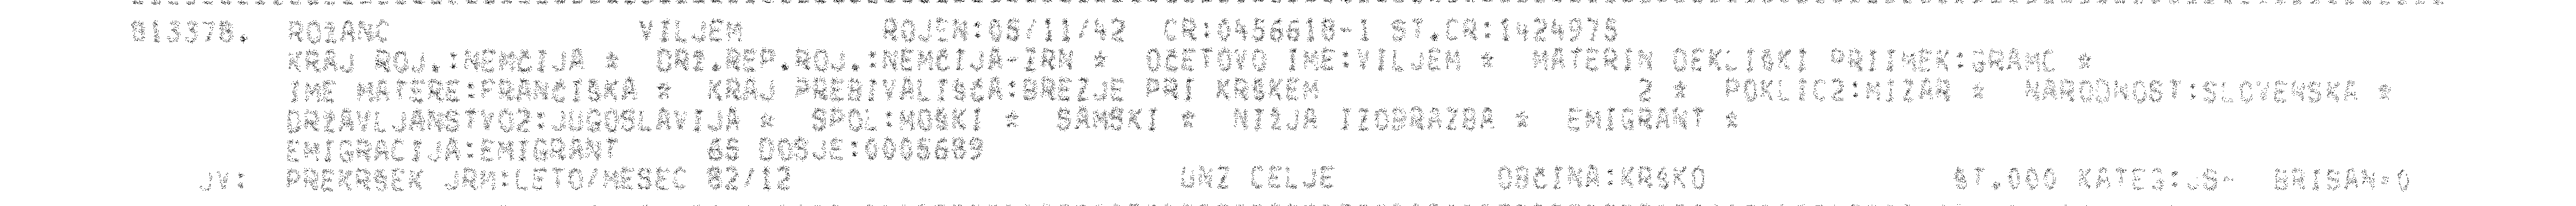 813378. ROŽANC VILJEM ROJEN:05/11/42 CR:0456618-1 ST.CR:1424975
KRAJ ROJ.:NEMČIJA * DRŽ.REP.ROJ.:NEMČIJA-ZRN * OČETOVO IME:VILJEM * MATERIN DEKLIŠKI PRIIMEK:GRAMC *
IME MATERE:FRANČIŠKA * KRAJ PREBIVALIŠČA:BREZJE PRI KRŠKEM 2 * POKLIC2:MIZAR * NARODNOST:SLOVENSKA *
DRŽAVLJANSTVO2:JUGOSLAVIJA * SPOL:MOŠKI * SAMSKI * NIŽJA IZOBRAZBA * EMIGRANT *
EMIGRACIJA:EMIGRANT 65 DOSJE:0005689
JV: PREKRŠEK JRM:LETO/MESEC 82/12 UNZ CELJE OBČINA:KRŠKO ŠT.000 KATEG:JS- BRISAN=0